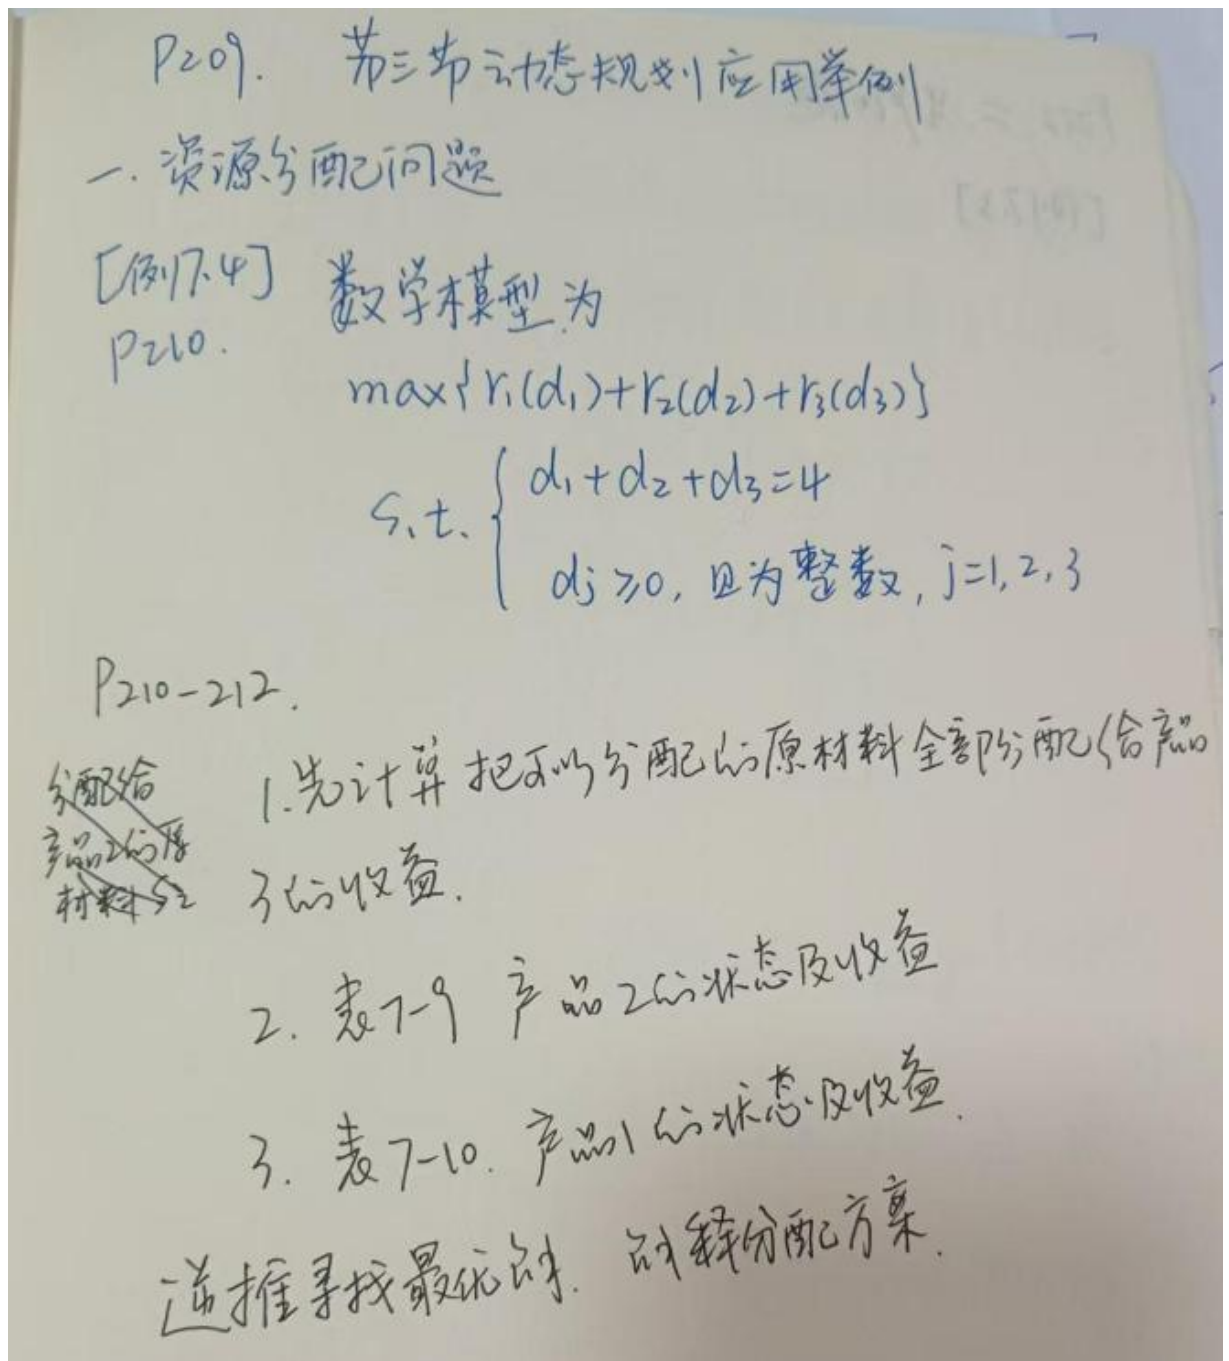 P209. 第三节动态规划应用举例
一.资源分配问题
[例7.4] 数学模型为
P210.
max{r₁(d₁)+r₂(d₂)+r₃(d₃)}
s.t. { d₁+d₂+d₃=4
dj≥0, 且为整数, j=1,2,3
P210-212.
1.先计算把可以分配的原材料全部分配给产品
3的收益.
分配给
产品2的原
材料S₂
2. 表7-9 产品2的状态及收益
3. 表7-10. 产品1的状态及收益.
逆推寻找最优解. 解释分配方案.